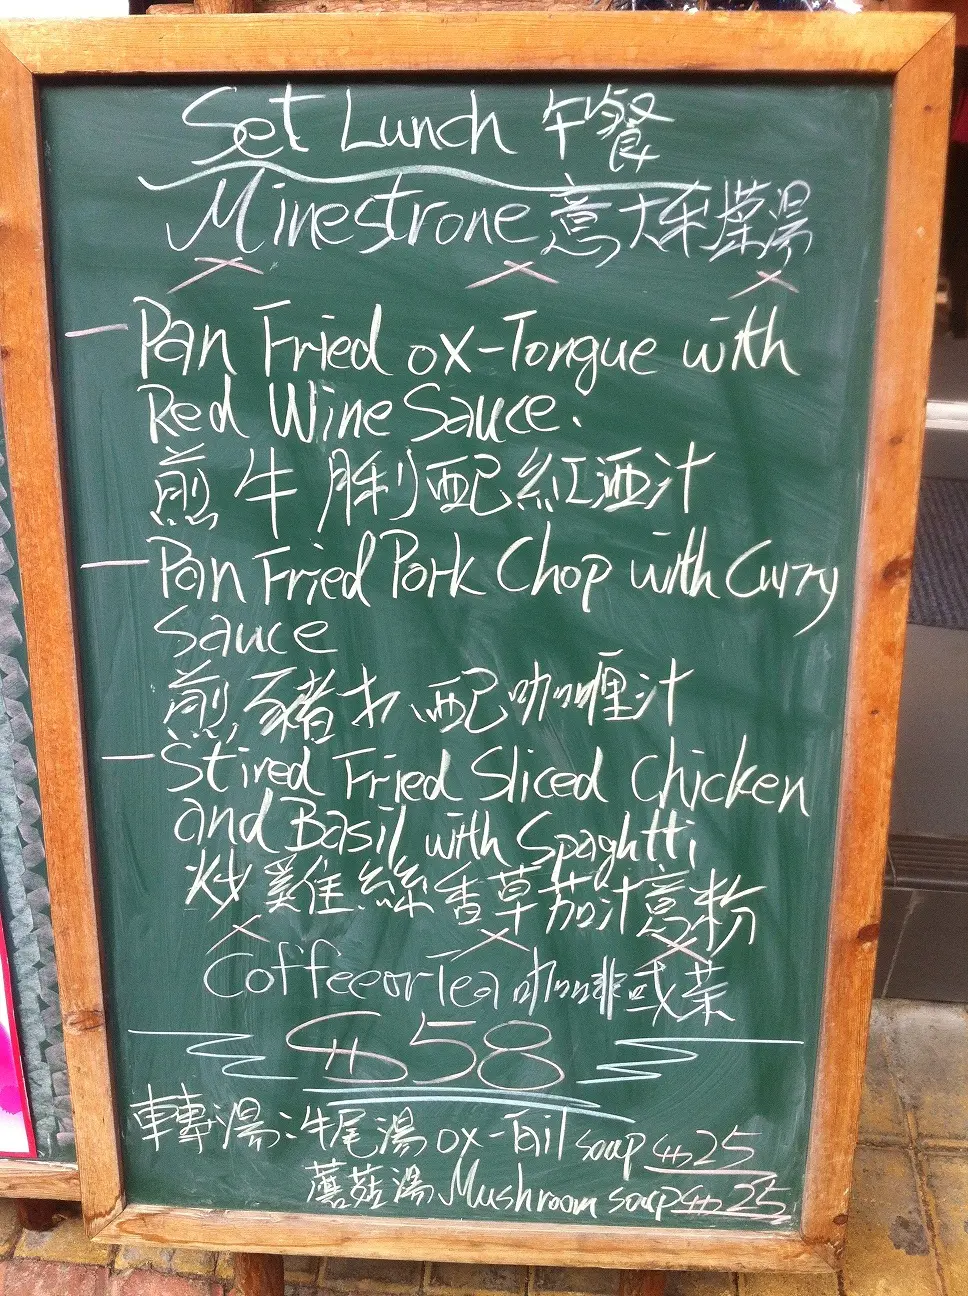 Set Lunch 午餐
Minestrone 意大利雜菜湯
Pan Fried ox-Tongue with
Red Wine Sauce.
煎牛脷配紅酒汁
Pan Fried Pork Chop with Curry
Sauce
煎豬扒配咖喱汁
Stired Fried Sliced Chicken
and Basil with Spaghtti
炒雞絲香草茄汁意粉
Coffee or Tea 咖啡或茶
$58
轉湯:牛尾湯 ox-Tail soup $25
蘑菇湯 Mushroom soup $25